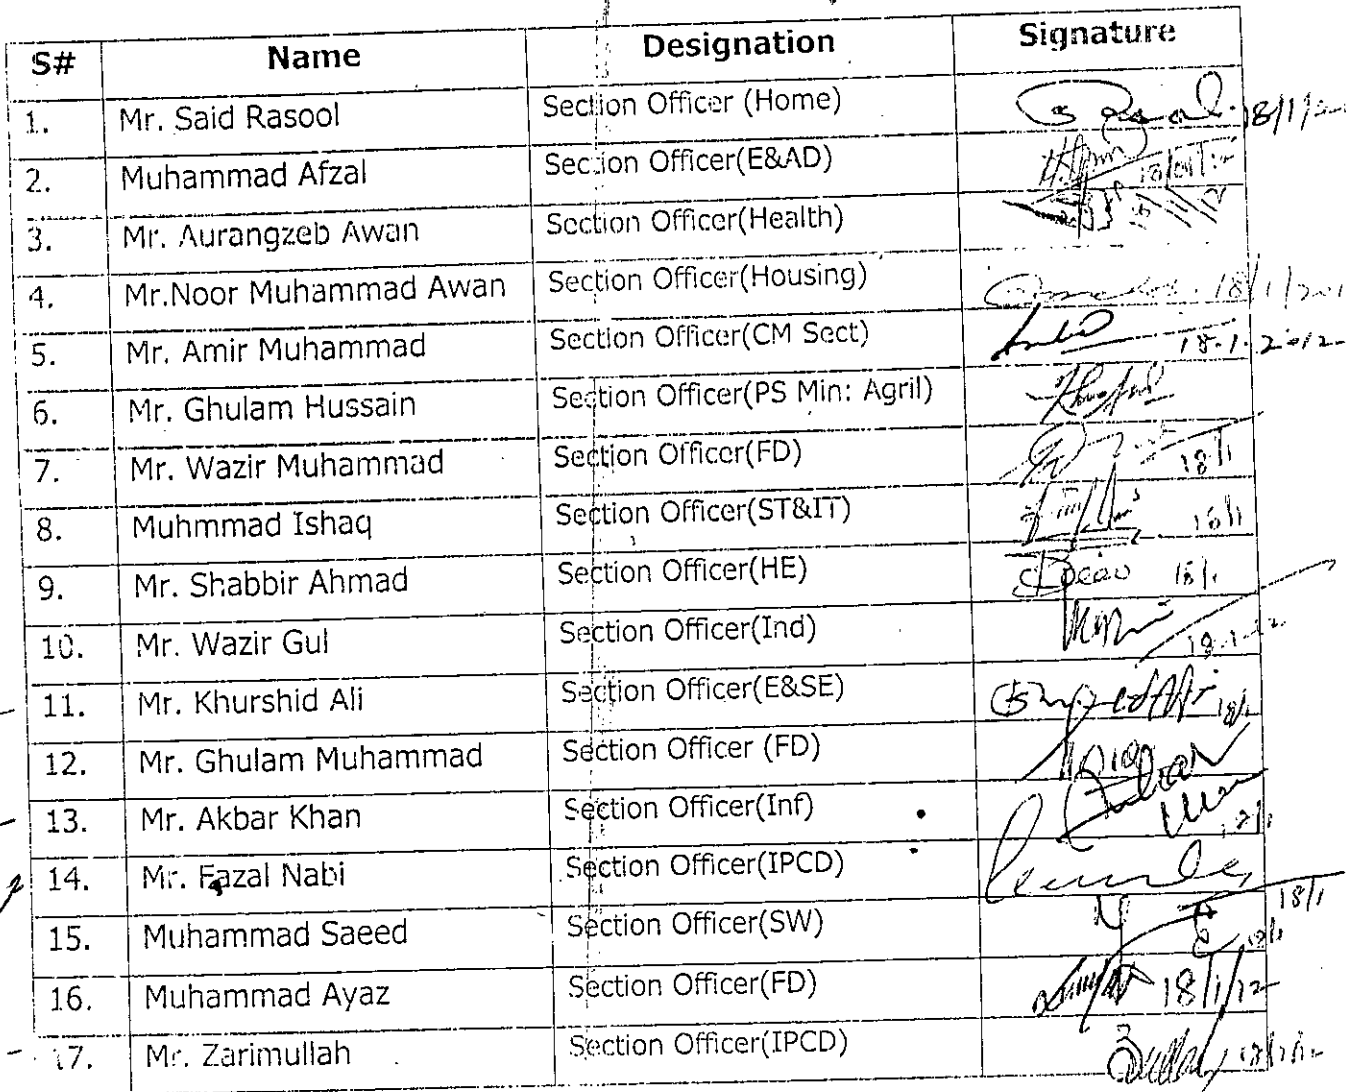 S# Name Designation Signature
1. Mr. Said Rasool Section Officer (Home) 18/1/
2. Muhammad Afzal Section Officer(E&AD)
3. Mr. Aurangzeb Awan Section Officer(Health)
4. Mr.Noor Muhammad Awan Section Officer(Housing) 18/1/201
5. Mr. Amir Muhammad Section Officer(CM Sect) 18.1.2012
6. Mr. Ghulam Hussain Section Officer(PS Min: Agril)
7. Mr. Wazir Muhammad Section Officer(FD) 18/1
8. Muhmmad Ishaq Section Officer(ST&IT)
9. Mr. Shabbir Ahmad Section Officer(HE)
10. Mr. Wazir Gul Section Officer(Ind)
11. Mr. Khurshid Ali Section Officer(E&SE)
12. Mr. Ghulam Muhammad Section Officer (FD)
13. Mr. Akbar Khan Section Officer(Inf)
14. Mr. Fazal Nabi Section Officer(IPCD)
15. Muhammad Saeed Section Officer(SW) 18/1
16. Muhammad Ayaz Section Officer(FD) 18/1/12
17. Mr. Zarimullah Section Officer(IPCD)